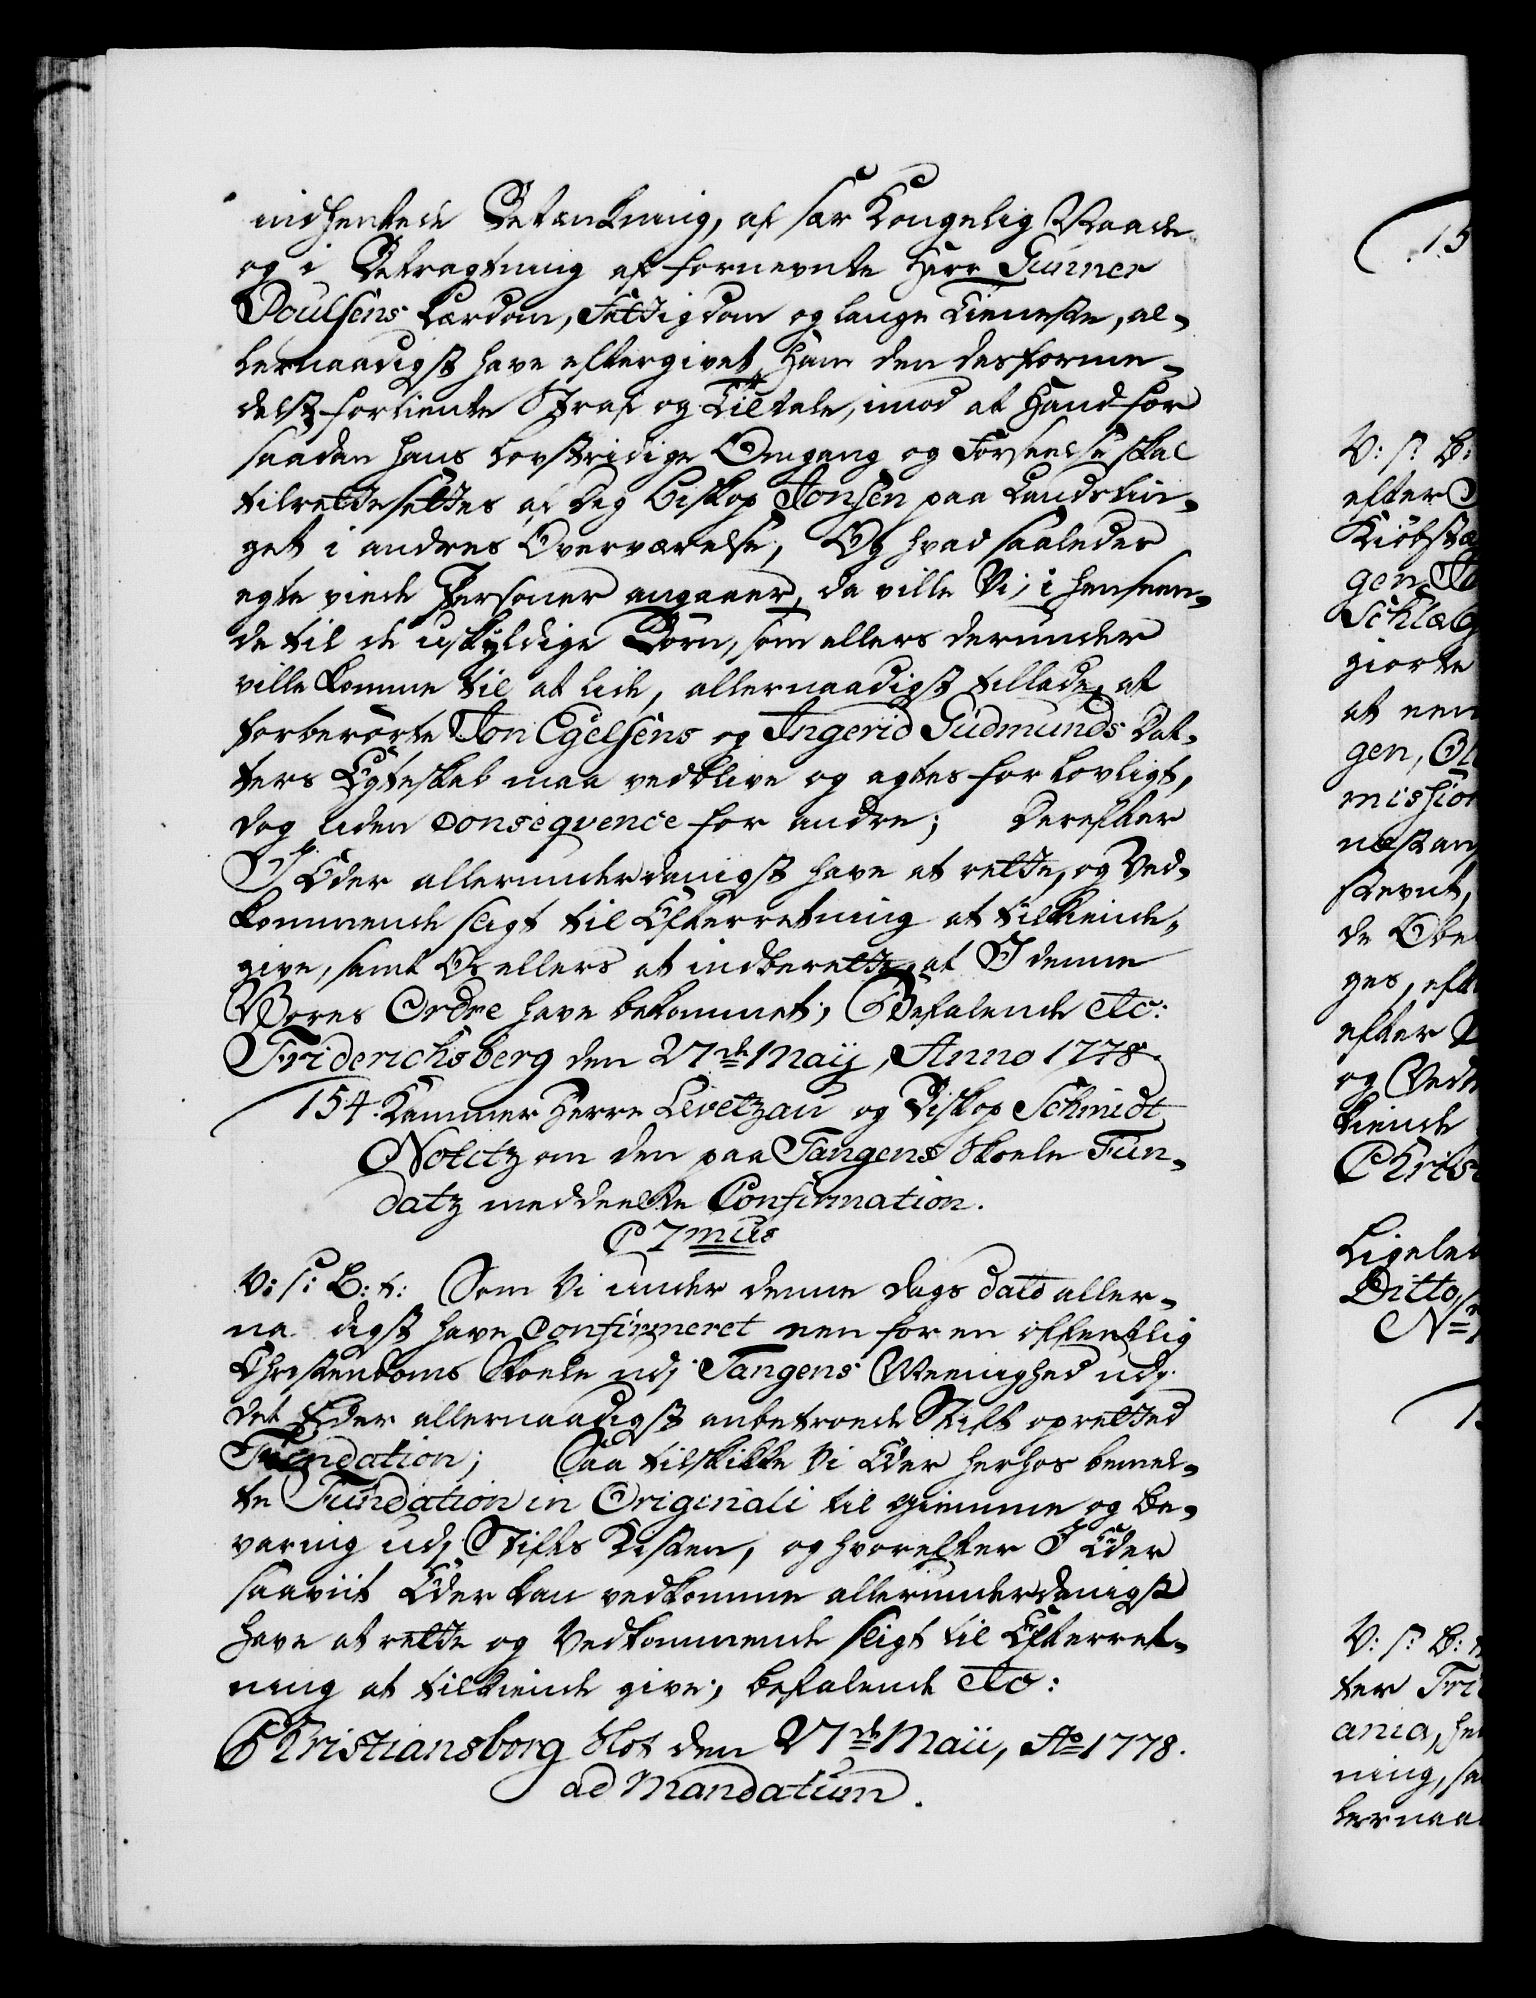 indhentede Betænkning, af sær Kongelig Naade
og i Betragtning af fornevnte Herr Gunner
Poulsens Lærdom, Fattigdom og lange Tieneste, al-
lernaadigst have eftergivet Ham den desforme-
delst fortiente Straf og Tiltale, imod at Hand for
saadan hans lovstridige Omgang og Forseelse skal
tilrettesettes af dig Biskop Jonsen paa Landstin-
get i andres Overværelse; Og hvad saaledes
egte viede Personer angaaer, da ville Vi, i henseen-
de til de uskyldige Børn, som ellers derunder
ville komme til at lide, allernaadigst tillade, at
forberørte Jon Egelsens og Ingerid Gudmunds Dat-
ters Egteskab maa vedblive og agtes for lovligt,
dog uden Conseqvence for andre; Derefter
I Eder allerunderdanigst have at rette, og Ved-
kommende sligt til Efterretning at tilkiende-
give, samt Os ellers at indberette, at I denne
Vores Ordre have bekommet; Befalende etc:
Friderichsberg den 27de Maij, Anno 1778.
154. Kammer Herre Levetzau og Biskop Schmidt
Notitz om den paa Tangens Skoele Fun-
datz meddeelte Confirmation.
C 7mus
V: s: B: t: Som Vi under denne dags dato aller-
naadigst have Confirmeret een for en offentlig
Christendoms Skoele udj Tangens Meenighed udj
det Eder allernaadigst anbetroede Stift opretted
Fundation; Saa tilskikke Vi Eder herhos bemel-
te Fundation in Originali til Giemme og Be-
varing udj Stifts Kisten, og hvorefter I Eder
saaviit Eder kan vedkomme allerunderdanigst
have at rette og Vedkommende sligt til Efterret-
ning at tilkiende give; befalende etc:
Christiansborg Slot den 27de Maii, Ao 1778.
ad Mandatum.
15
V: s: B:
efter
Kiøbstæ
gen
Schlæ
giorte
at een
gen,
mission
næstan
stevnt,
de Obe
ges, eft
efter
og Vedk
kiende
Chris
Ligeled
Ditto
No
V: s: B: t
ter Fri
ania, he
ning, sa
lernaa